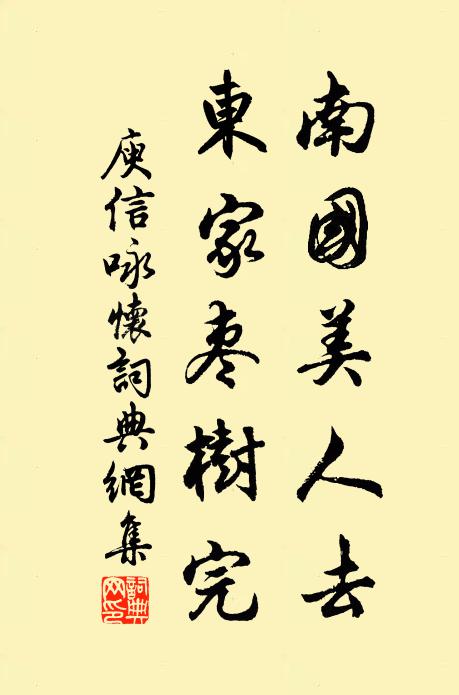 南國美人去
東家棗樹完
庾信咏懷詞典網集
詞典
网印